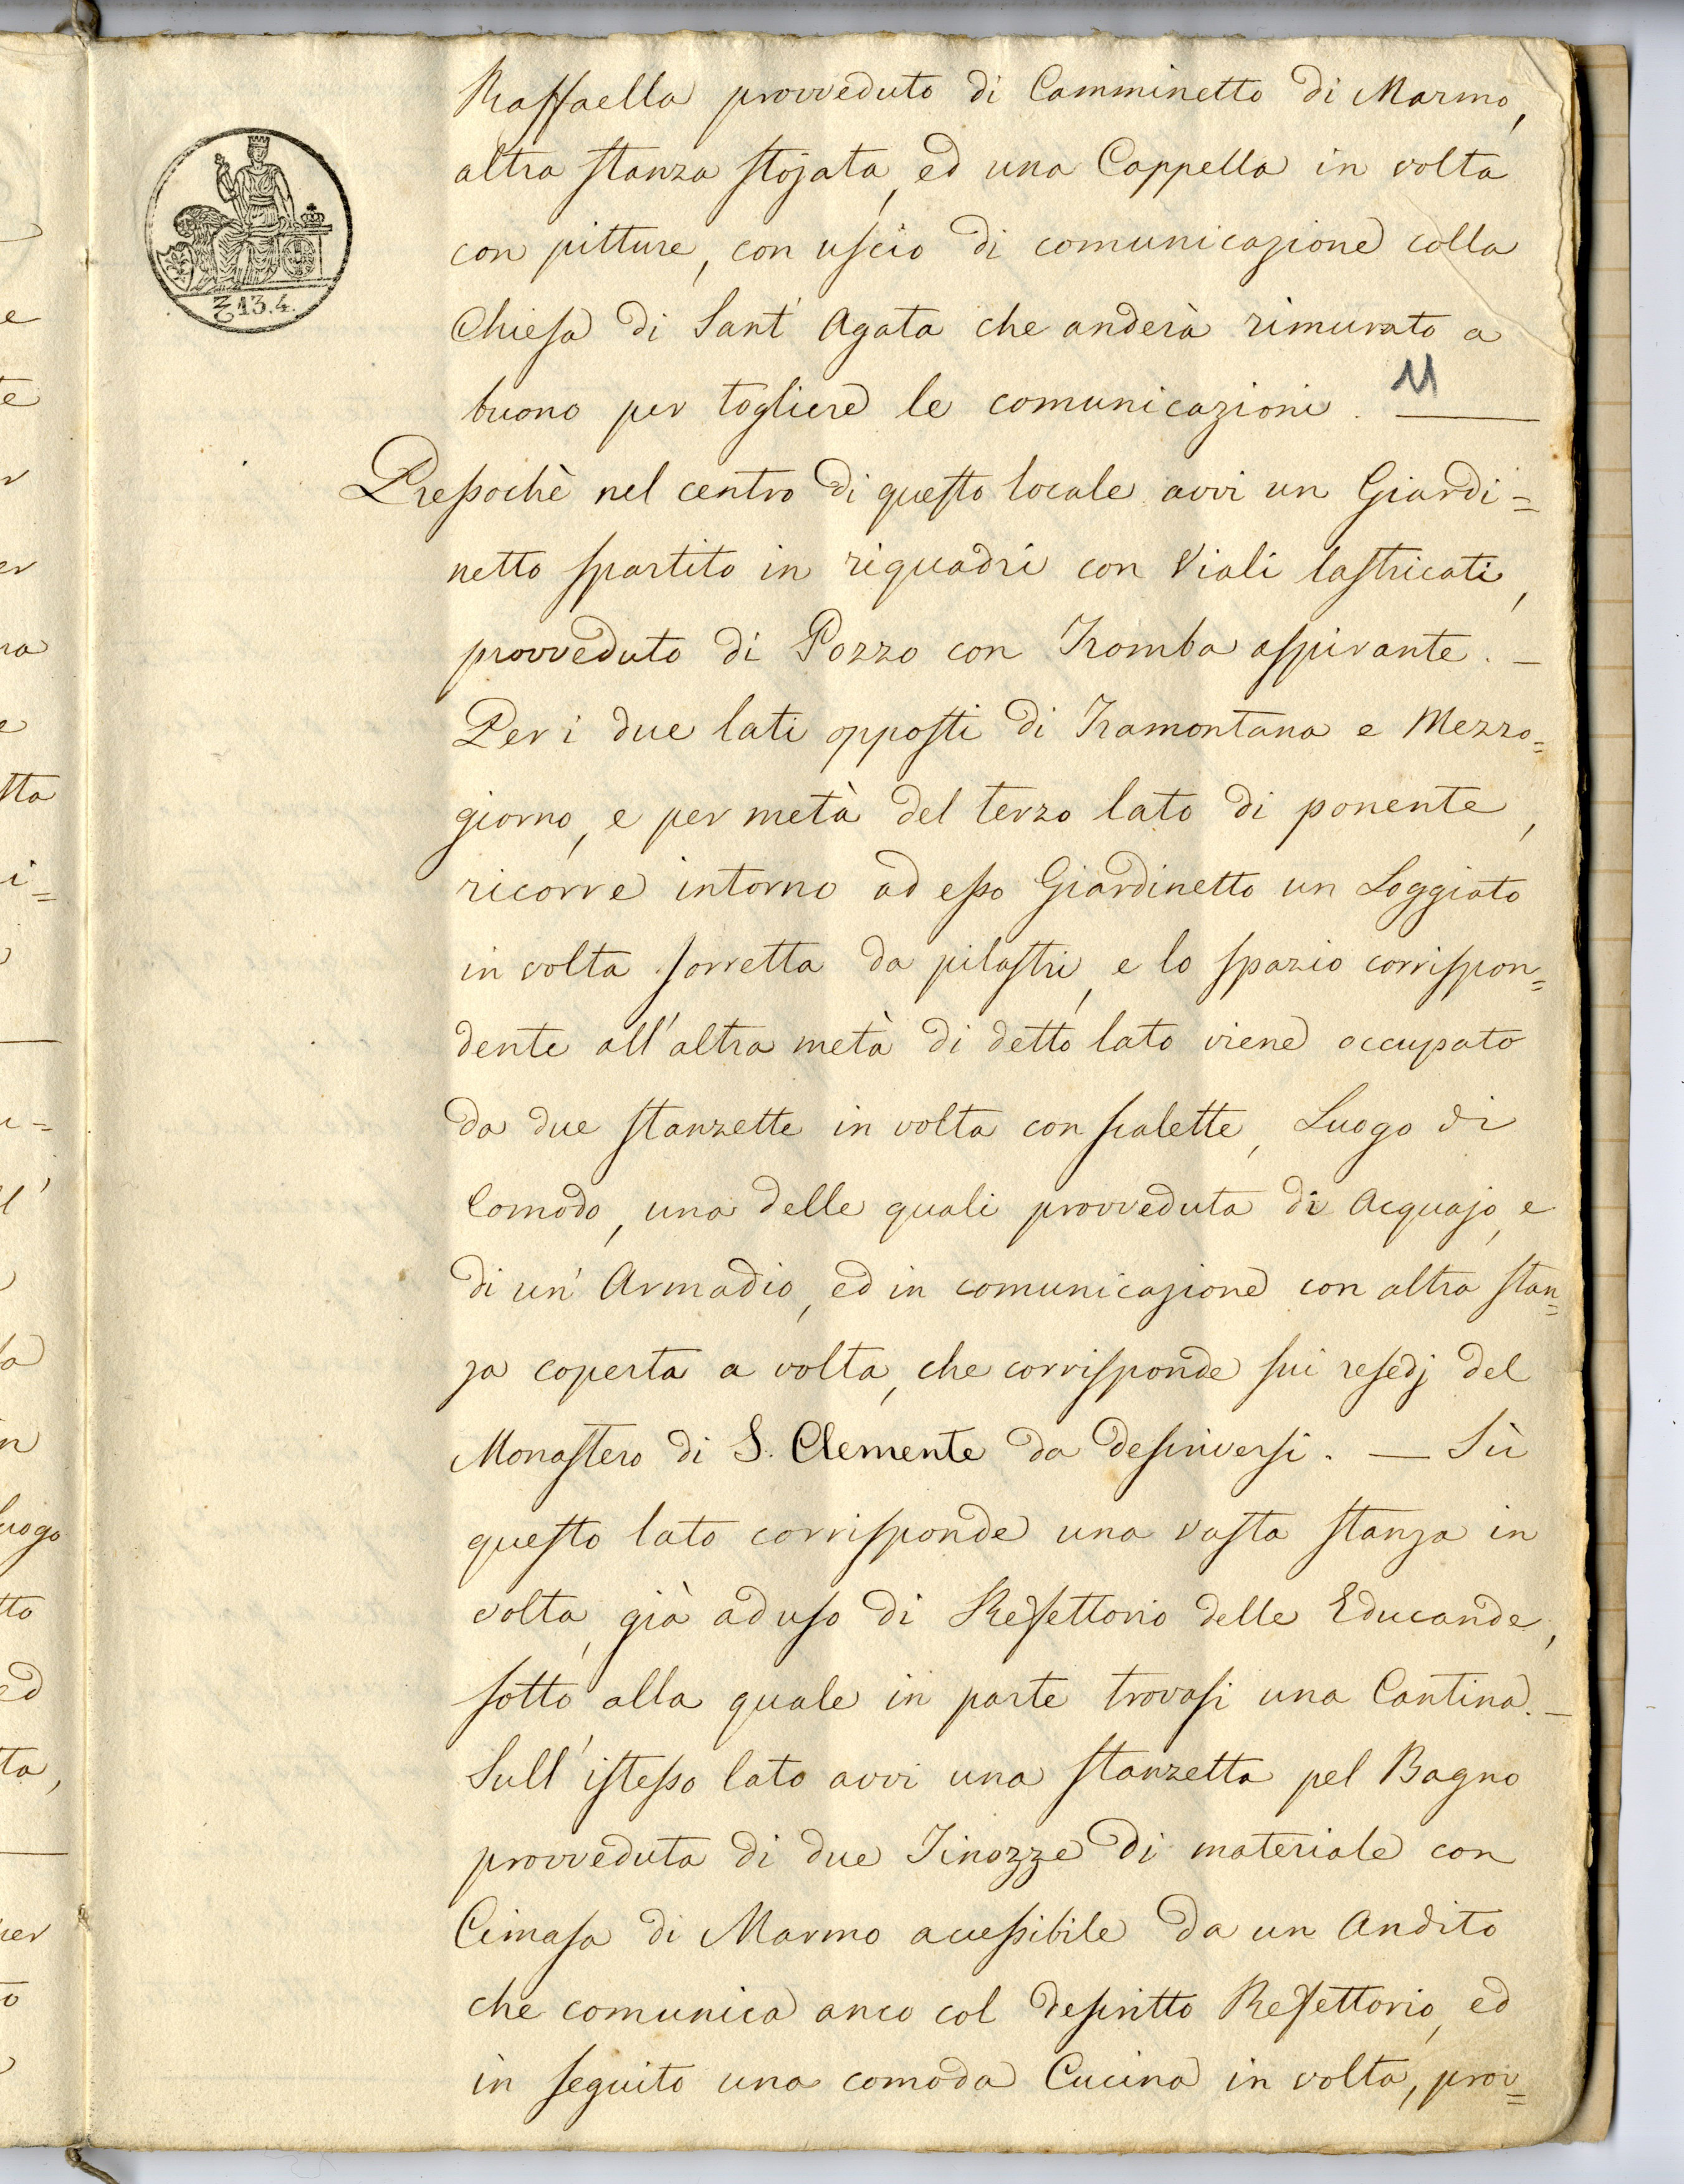 Raffaella provveduto di Camminetto di Marmo,
altra stanza stojata, ed una Cappella in volta
con pitture, con uscio di comunicazione colla
Chiesa di Sant' Agata che anderà rimurato a
buono per togliere le comunicazioni. 11
Pressochè nel centro di questo locale avvi un Giardi=
netto spartito in riquadri con Viali lastricati,
provveduto di Pozzo con Tromba aspirante. —
Per i due lati opposti di Tramontana e Mezzo=
giorno, e per metà del terzo lato di ponente,
ricorre intorno ad esso Giardinetto un Loggiato
in volta sorretta da pilastri, e lo spazio corrispon=
dente all'altra metà di detto lato viene occupato
da due stanzette in volta con scalette, Luogo di
Comodo, una delle quali provveduta di Acquajo, e
di un' Armadio, ed in comunicazione con altra stan=
za coperta a volta, che corrisponde sui resedj del
Monastero di S. Clemente da descriversi. — Sù
questo lato corrisponde una vasta stanza in
volta, già ad uso di Refettorio delle Educande,
sotto alla quale in parte trovasi una Cantina. —
Sull' istesso lato avvi una stanzetta pel Bagno
provveduta di due Tinozze di materiale con
Cimasa di Marmo accessibile da un Andito
che comunica anco col descritto Refettorio, ed
in seguito una comoda Cucina in volta, prov=
13.4.